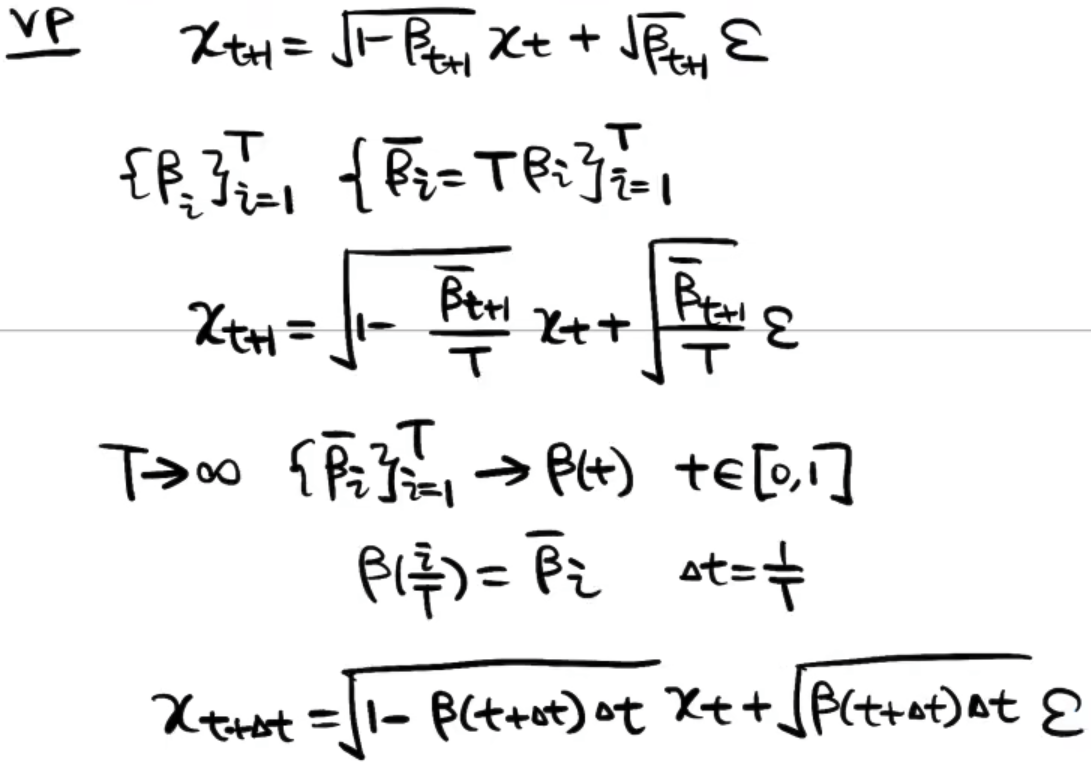 VP x_{t+1} = √(1-β_{t+1}) x_t + √β_{t+1} ε
{β_i}_{i=1}^T {β̄_i = Tβ_i}_{i=1}^T
x_{t+1} = √(1 - β̄_{t+1}/T) x_t + √(β̄_{t+1}/T) ε
T→∞ {β̄_i}_{i=1}^T → β(t) t∈[0,1]
β(i/T) = β̄_i Δt = 1/T
x_{t+Δt} = √(1 - β(t+Δt)Δt) x_t + √(β(t+Δt)Δt) ε